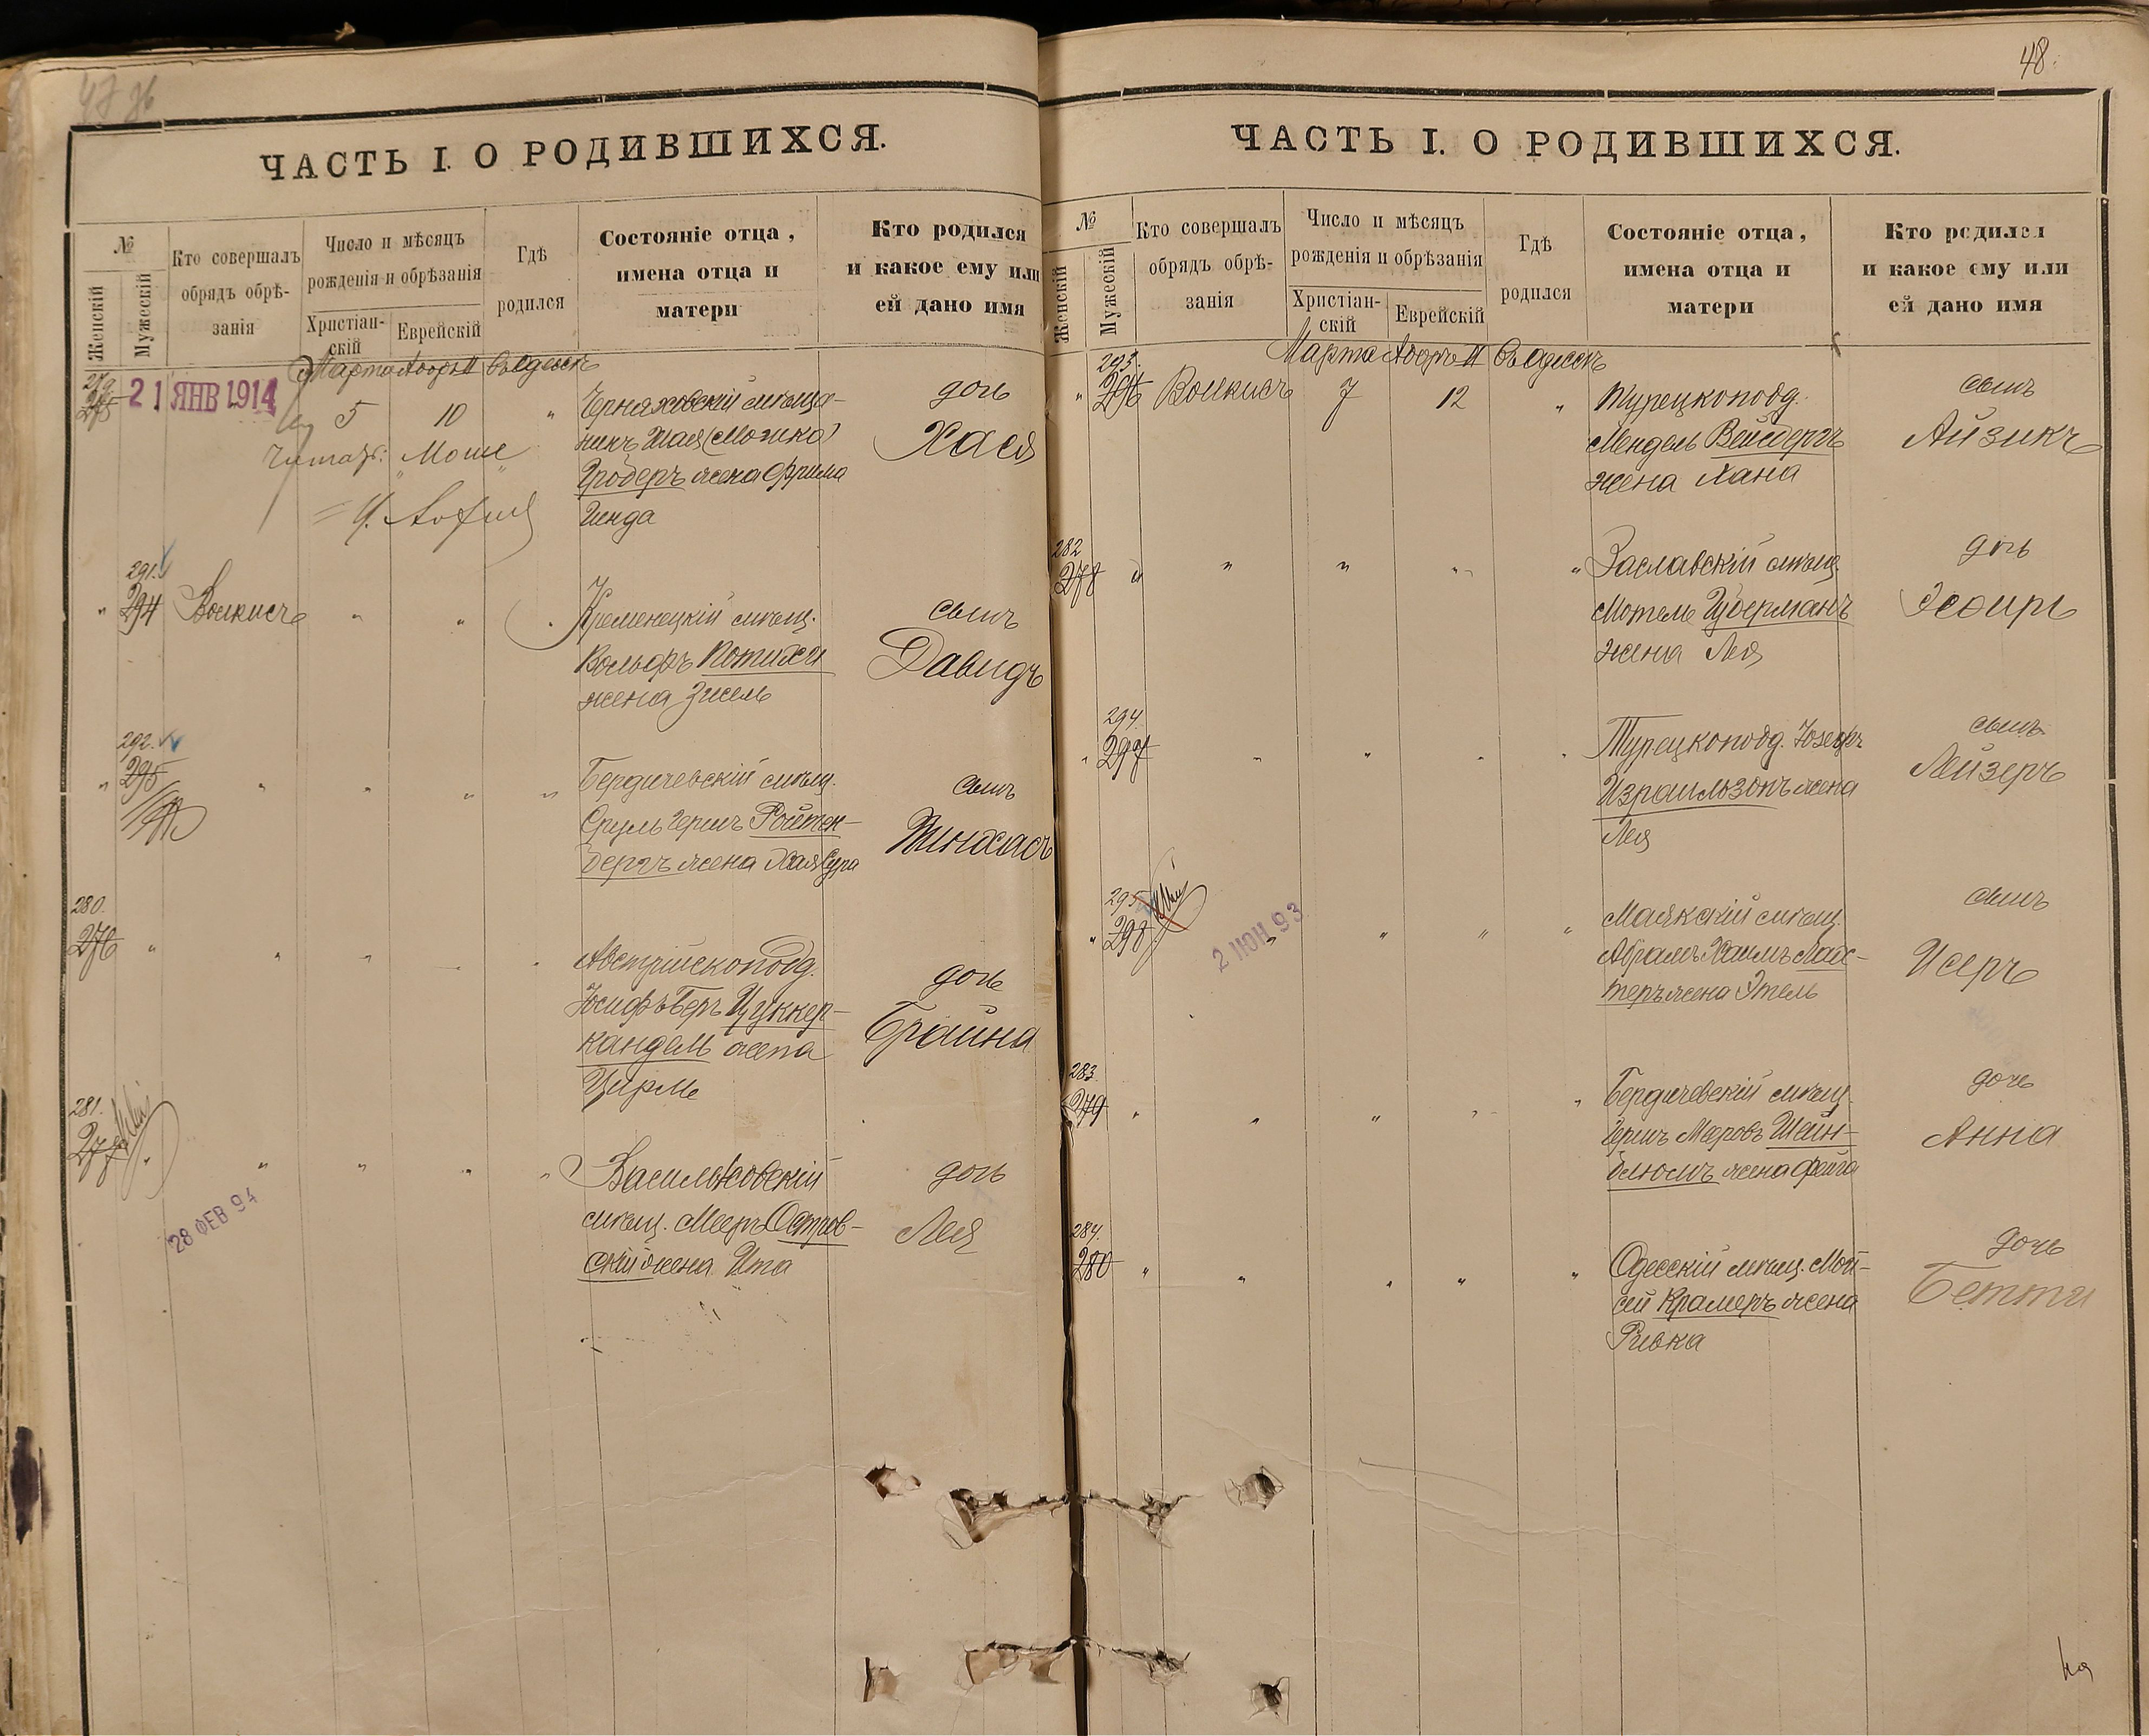 47 об
ЧАСТЬ I. О РОДИВШИХСЯ.
№
Женскій
Мужескій
Кто совершалъ
обрядъ обрѣ-
занія
Число и мѣсяцъ
рожденія и обрѣзанія
Христіан-
скій
Еврейскій
Гдѣ
родился
Состояніе отца,
имена отца и
матери
Кто родился
и какое ему или
ей дано имя
Марта Адоръ II Въ Одессѣ
279.
275
21 ЯНВ 1914
5 10 "
Черняховскій мѣща-
нинъ (Мошко)
Гродеръ жена Фрима
Гинда
дочь
Хася
Читать: "Моше"
291.
" 294 Волкисъ " " "
Кременецкій мѣщ.
Вольфъ Потиха
жена Зисель
сынъ
Давидъ
292.
" 295 " " " "
Бердичевскій мѣщ.
Сруль Гершъ Ройтен-
бергъ жена Хая Сура
сынъ
Пинхасъ
280.
276 " " " "
Австрійскоподд.
Іосифъ Беръ Цуккер-
кандель жена
Цирле
дочь
Брайна
281.
277
" " " "
28 ФЕВ 94
Васильковскій
мѣщ. Мееръ Остров-
скій жена Ита
дочь
Лея
48.
ЧАСТЬ I. О РОДИВШИХСЯ.
№
Женскій
Мужескій
Кто совершалъ
обрядъ обрѣ-
занія
Число и мѣсяцъ
рожденія и обрѣзанія
Христіан-
скій
Еврейскій
Гдѣ
родился
Состояніе отца,
имена отца и
матери
Кто родился
и какое ему или
ей дано имя
Марта Адоръ II Въ Одессѣ
293.
" 296 Волкисъ 7 12 "
Турецкоподд.
Мендель Вейсбергъ
жена Хана
сынъ
Айзикъ
282
278 " " " " "
Заславскій мѣщ.
Мотель Губерманъ
жена Лея
дочь
Эсѳирь
294.
" 297 " " " "
Турецкоподд. Іозефъ
Израильзонъ жена
Лея
сынъ
Лейзеръ
295
" 298 " " " "
2 ИЮН 93
Маякскій мѣщ.
Абрамъ Хаимъ Лах-
теръ жена Этель
сынъ
Исеръ
283.
279 " " " " "
Бердичевскій мѣщ.
Гершъ Мееровъ Шейн-
блюмъ жена Фейга
дочь
Анна
284.
280 " " " " "
Одесскій мѣщ. Мой-
сей Крамеръ жена
Ривка
дочь
Бетти